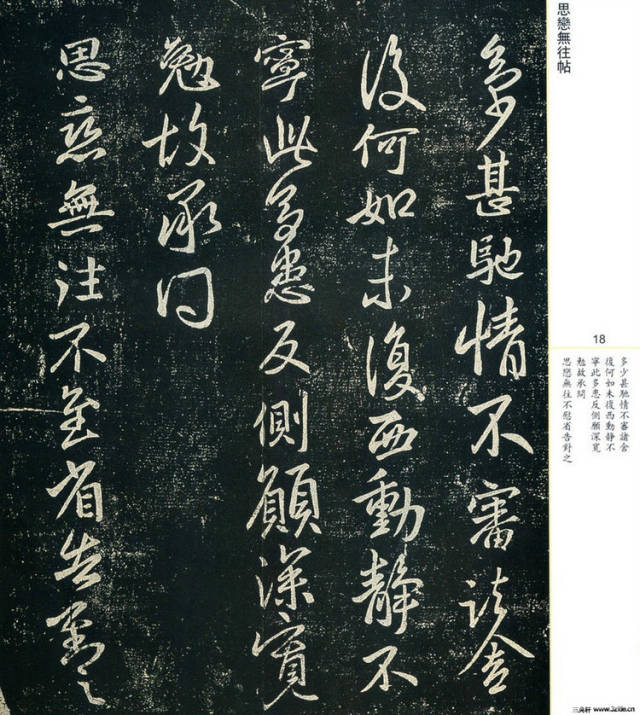 思戀無往帖
多少甚馳情不審諸舍
復何如未復西動靜不
寧此多患反側願深寬
勉故承問
思戀無往不慰省告對之
18
多少甚馳情不審諸舍
復何如未復西動靜不
寧此多患反側願深寬
勉故承問
思戀無往不慰省告對之
三典轩 www.3zitie.cn